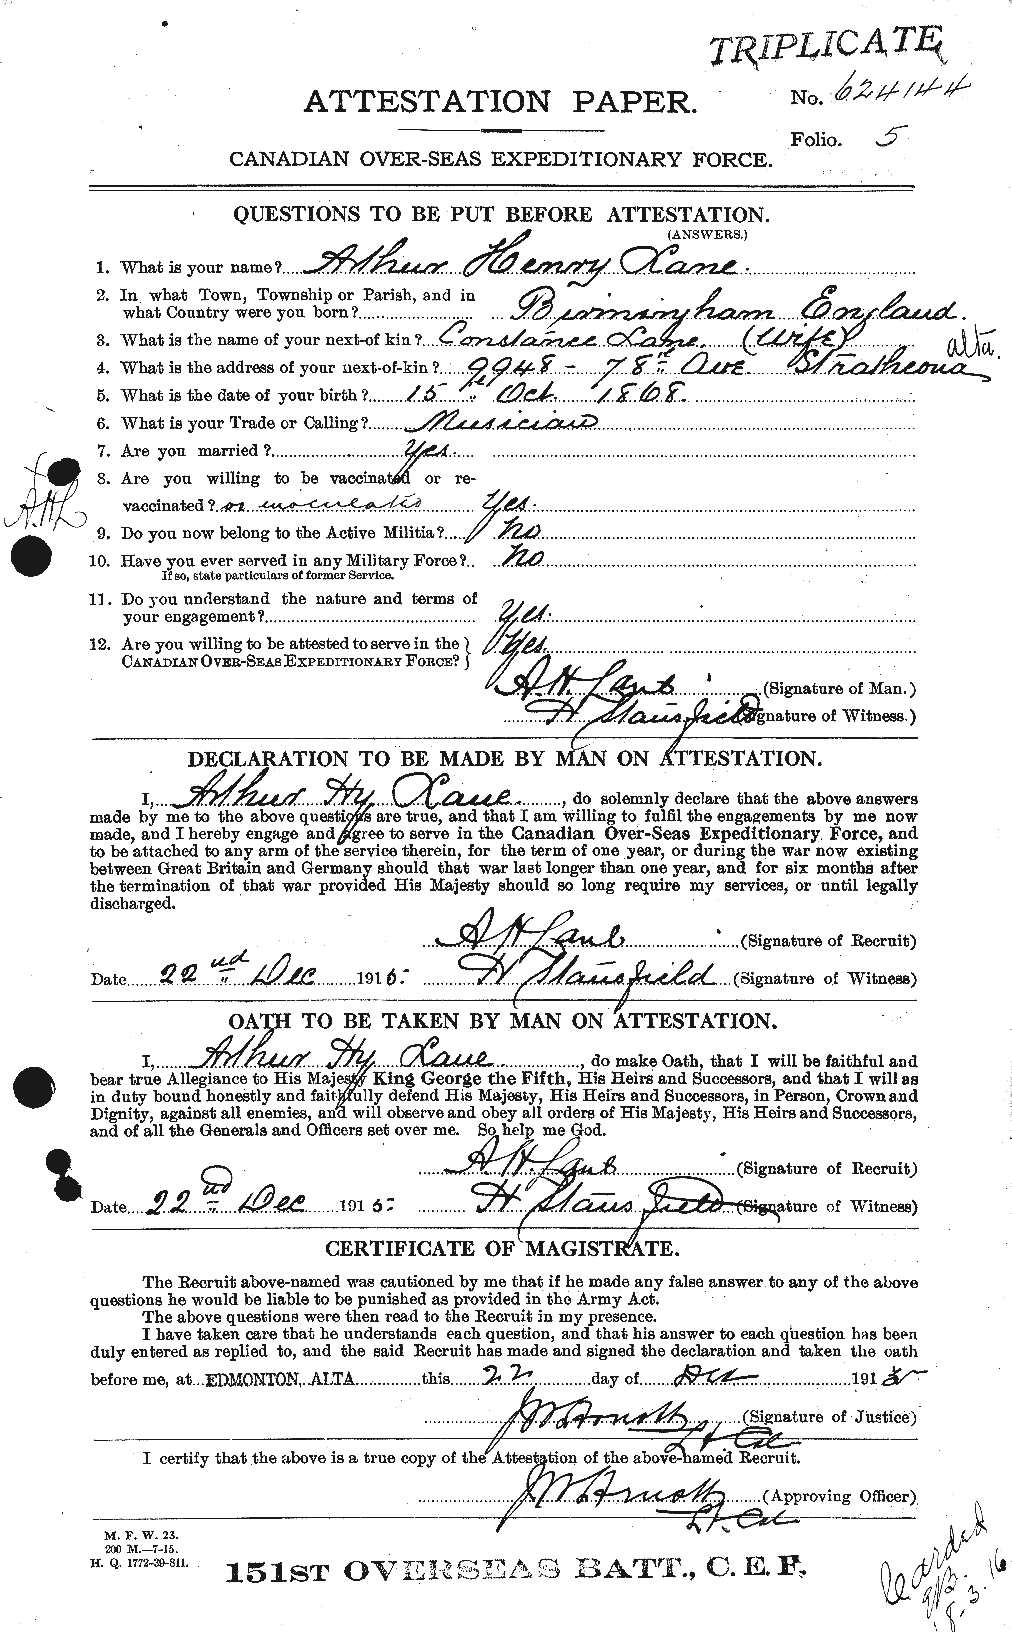 TRIPLICATE
ATTESTATION PAPER.
No. 624144
Folio. 5
CANADIAN OVER-SEAS EXPEDITIONARY FORCE.
QUESTIONS TO BE PUT BEFORE ATTESTATION.
(ANSWERS.)
1. What is your name? Arthur Henry Lane.
2. In what Town, Township or Parish, and in
what Country were you born? Birmingham England.
3. What is the name of your next-of kin? Constance Lane. (Wife)
4. What is the address of your next-of-kin? 9948 - 78th Ave Strathcona alta.
5. What is the date of your birth? 15 Oct. 1868.
6. What is your Trade or Calling? Musician
7. Are you married? Yes.
8. Are you willing to be vaccinated or re-
vaccinated? Yes.
A.H.L
9. Do you now belong to the Active Militia? No
10. Have you ever served in any Military Force? No
If so, state particulars of former Service.
11. Do you understand the nature and terms of
your engagement? Yes.
12. Are you willing to be attested to serve in the } Yes.
CANADIAN OVER-SEAS EXPEDITIONARY FORCE? }
A.H. Lane (Signature of Man.)
H Stansfield (Signature of Witness.)
DECLARATION TO BE MADE BY MAN ON ATTESTATION.
I, Arthur Hy Lane, do solemnly declare that the above answers
made by me to the above questions are true, and that I am willing to fulfil the engagements by me now
made, and I hereby engage and agree to serve in the Canadian Over-Seas Expeditionary Force, and
to be attached to any arm of the service therein, for the term of one year, or during the war now existing
between Great Britain and Germany should that war last longer than one year, and for six months after
the termination of that war provided His Majesty should so long require my services, or until legally
discharged.
A H Lane (Signature of Recruit)
Date 22nd Dec 1915. H Stansfield (Signature of Witness)
OATH TO BE TAKEN BY MAN ON ATTESTATION.
I, Arthur Hy Lane, do make Oath, that I will be faithful and
bear true Allegiance to His Majesty King George the Fifth, His Heirs and Successors, and that I will as
in duty bound honestly and faithfully defend His Majesty, His Heirs and Successors, in Person, Crown and
Dignity, against all enemies, and will observe and obey all orders of His Majesty, His Heirs and Successors,
and of all the Generals and Officers set over me. So help me God.
A.H. Lane (Signature of Recruit)
Date 22nd Dec 1915. H Stansfield (Signature of Witness)
CERTIFICATE OF MAGISTRATE.
The Recruit above-named was cautioned by me that if he made any false answer to any of the above
questions he would be liable to be punished as provided in the Army Act.
The above questions were then read to the Recruit in my presence.
I have taken care that he understands each question, and that his answer to each question has been
duly entered as replied to, and the said Recruit has made and signed the declaration and taken the oath
before me, at EDMONTON, ALTA this 22 day of Dec 1915
(Signature of Justice)
Lt. Col
I certify that the above is a true copy of the Attestation of the above-named Recruit.
(Approving Officer)
Lt. Col
M. F. W. 23.
200 M.—7-15.
H. Q. 1772-39-811.
151ST OVERSEAS BATT., C.E.F.
8.3.16